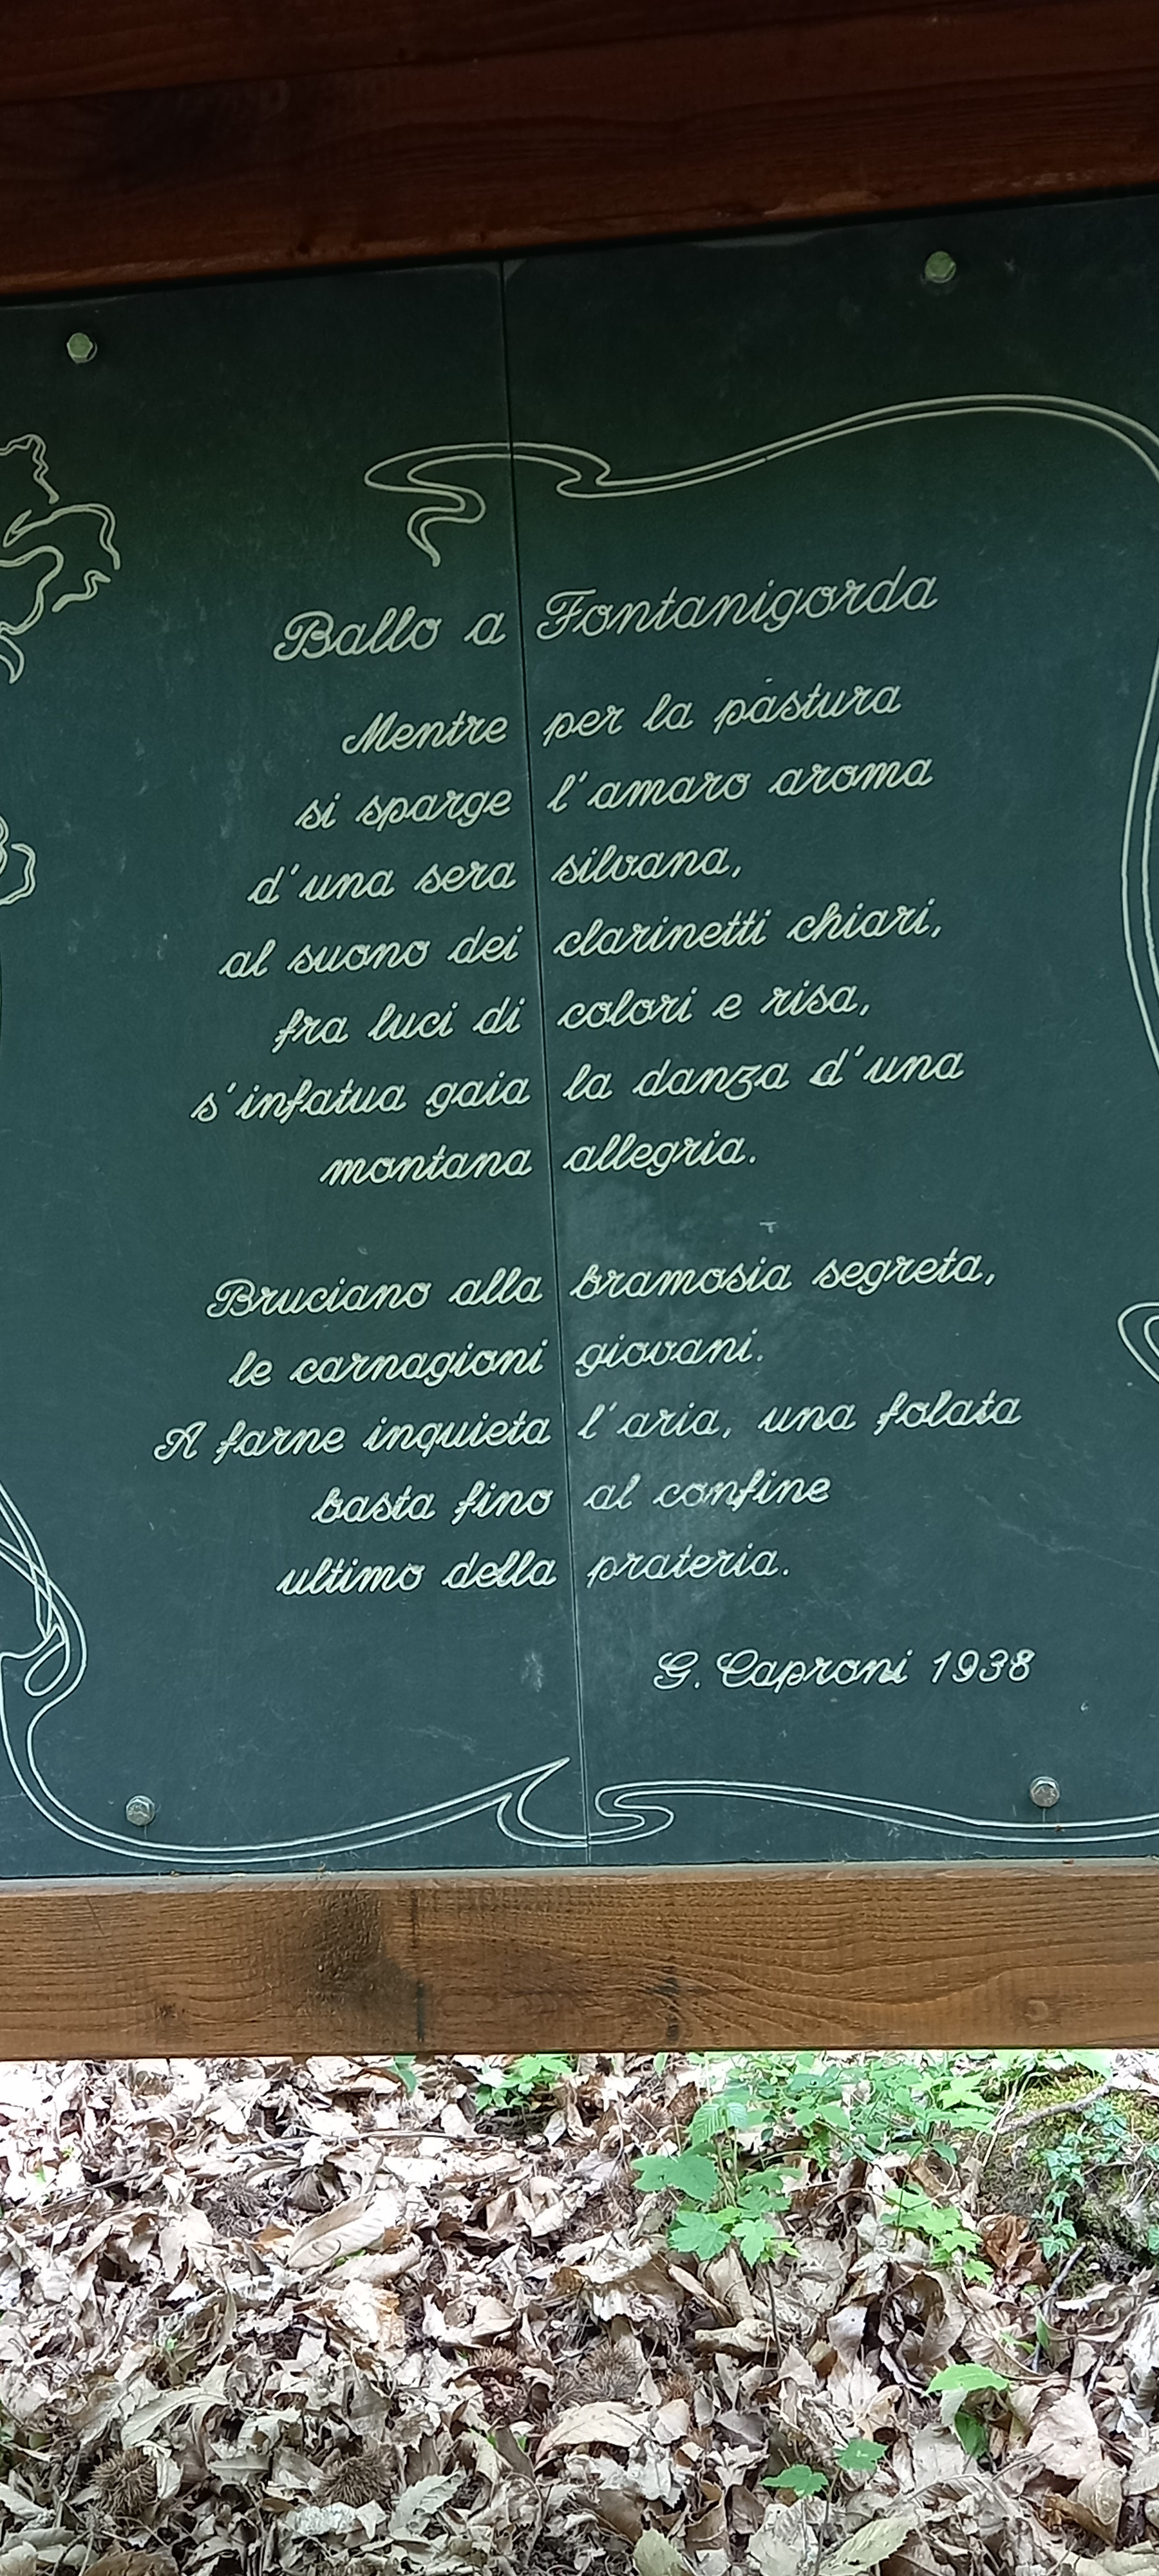 Ballo a Fontanigorda
Mentre per la pastura
si sparge l'amaro aroma
d'una sera silvana,
al suono dei clarinetti chiari,
fra luci di colori e risa,
s'infatua gaia la danza d'una
montana allegria.
Bruciano alla bramosia segreta,
le carnagioni giovani.
A farne inquieta l'aria, una folata
basta fino al confine
ultimo della prateria.
G. Caproni 1938